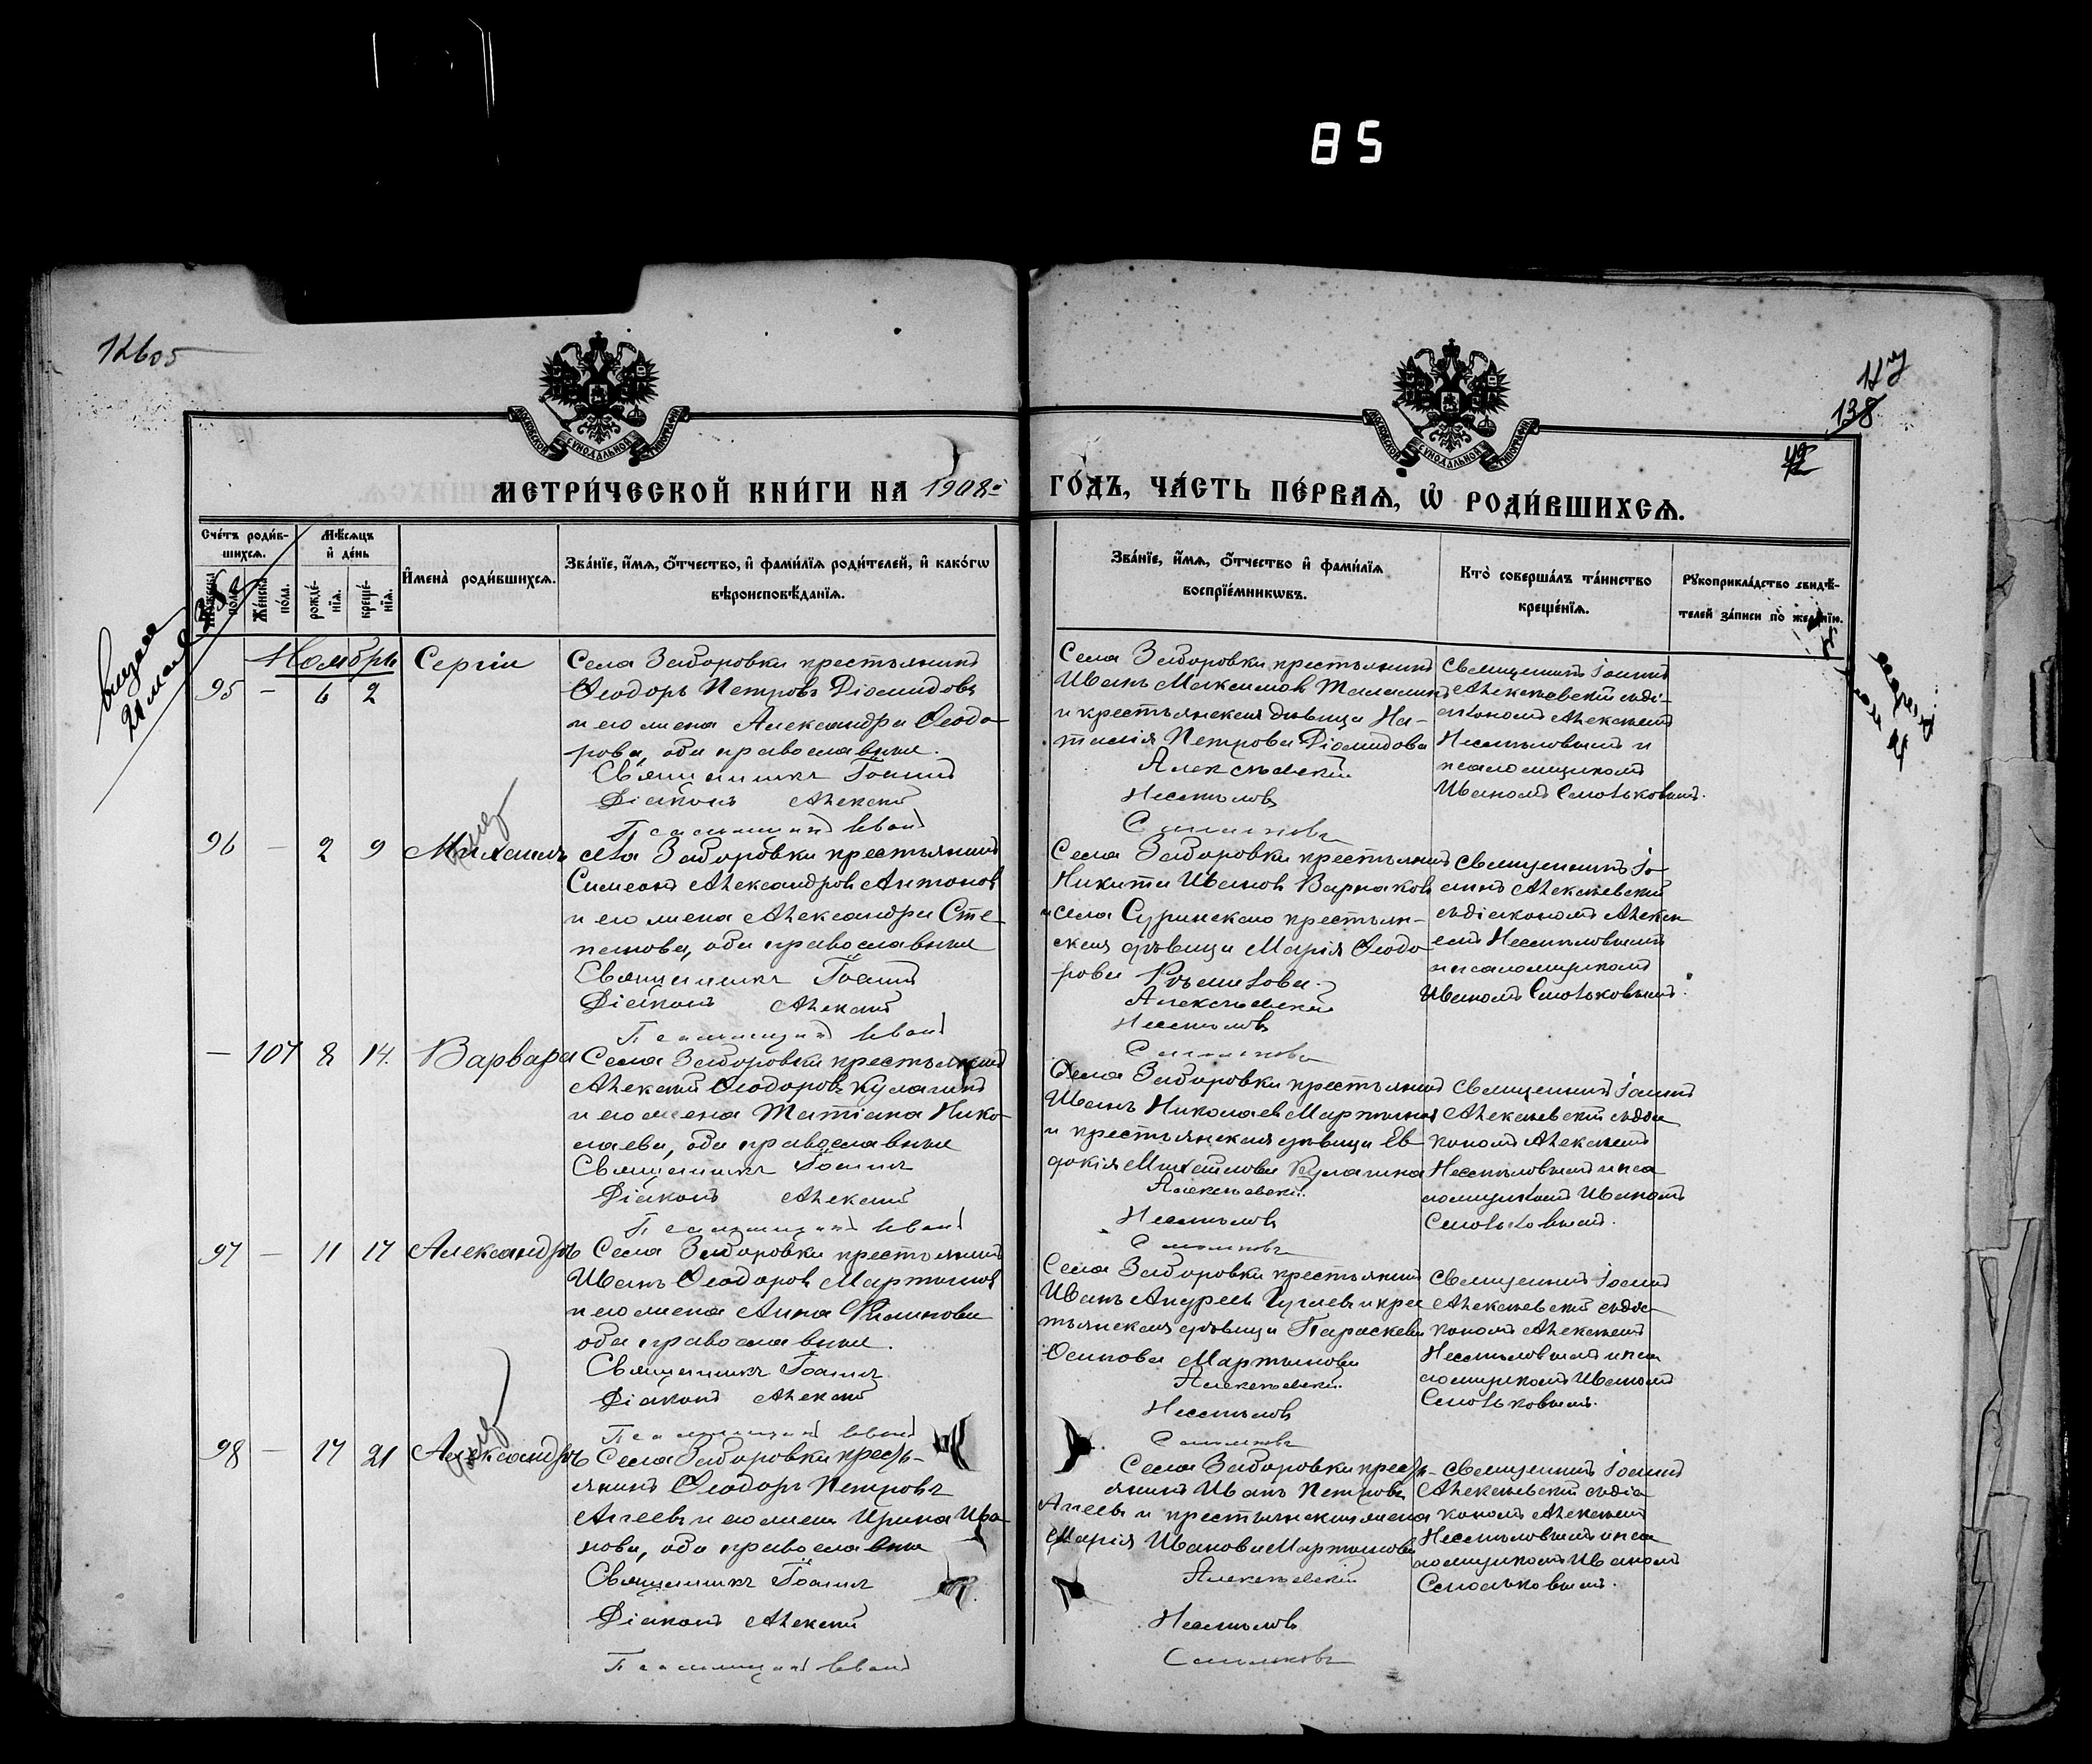 85
12605
138
МЕТРИ́ЧЕСКОЙ КНИ́ГИ НА 1908й ГО́ДЪ, ЧА́СТЬ ПЕ́РВАѦ, Ѽ РОДИ́ВШИХСѦ.
Сче́тъ роди́в-
шихсѧ.
Мѣ́сѧцъ
и҆ де́нь
Же́нска
по́ла.
рожде́-
нїѧ.
креще́-
нїѧ.
И҆мена̀ роди́вшихсѧ.
Зва́нїе, и҆́мѧ, ѻ҆́тчество, и҆ фами́лїѧ роди́телей, и҆ како́гѡ
вѣроисповѣ́данїѧ.
Зва́нїе, и҆́мѧ, ѻ҆́тчество и҆ фами́лїѧ
воспрїе́мникѡвъ.
Кто̀ соверша́лъ та́инство
креще́нїѧ.
Рꙋкоприкла́дство свидѣ́-
телей за́писи по жела́нїю.
Ноябрь
95 - 6 2
Сергiй
Села Заборовки крестьянинъ
Ѳеодоръ Петровъ Дiомидовъ
и его жена Александра Ѳеодо-
рова, оба православные.
Священникъ Iоаннъ
Дiаконъ Алексiй
Псаломщикъ Иванъ
Села Заборовки крестьянинъ
Иванъ Максимовъ
и крестьянская дѣвица На-
талiя Петрова Дiомидова
Алексѣевскiй
Несмѣловъ
Священникъ Iоаннъ
Алексѣевскiй съ дi-
акономъ Алексѣемъ
Несмѣловымъ и
псаломщикомъ
Иваномъ
96 - 2 9
Михаилъ
села Заборовки крестьянинъ
Симеонъ Александровъ Антоновъ
и его жена Александра Сте-
панова, оба православные
Священникъ Iоаннъ
Дiаконъ Алексiй
Псаломщикъ Иванъ
Села Заборовки крестьянинъ
Никита Ивановъ Варнаковъ
и села Суринскаго крестьян-
ская дѣвица Марiя Ѳеодо-
рова
Алексѣевскiй
Несмѣловъ
Священникъ Iо-
аннъ Алексѣевскiй
съ дiакономъ Алексѣ-
емъ Несмѣловымъ
и псаломщикомъ
Иваномъ
- 107 8 14.
Варвара
Села Заборовки крестьянинъ
Алексiй Ѳеодоровъ Кулагинъ
и его жена Татiана Нико-
лаева, оба православные
Священникъ Iоаннъ
Дiаконъ Алексiй
Псаломщикъ Иванъ
Села Заборовки крестьянинъ
Иванъ Николаевъ Мартыновъ
и крестьянская дѣвица Ев-
докiя Михайлова Кулагина
Алексѣевскiй
Несмѣловъ
Священникъ Iоаннъ
Алексѣевскiй съ дiа-
кономъ Алексѣемъ
Несмѣловымъ и пса-
ломщикомъ Иваномъ
97 - 11 17
Александръ
Села Заборовки крестьянинъ
Иванъ Ѳеодоровъ Мартыновъ
и его жена Анна Филипова
оба православные.
Священникъ Iоаннъ
Дiаконъ Алексiй
Псаломщикъ Иванъ
Села Заборовки крестьянинъ
Иванъ Андреевъ и крес-
тьянская дѣвица Параскева
Осипова Мартынова
Алексѣевскiй
Несмѣловъ
Священникъ Iоаннъ
Алексѣевскiй съ дiа-
кономъ Алексѣемъ
Несмѣловымъ и пса-
ломщикомъ Иваномъ
98 - 17 21
Александръ
Села Заборовки кресть-
янинъ Ѳеодоръ Петровъ
Агеевъ и его жена Ирина Ива-
нова, оба православные
Священникъ Iоаннъ
Дiаконъ Алексiй
Псаломщикъ Иванъ
Села Заборовки кресть-
янинъ Иванъ Петровъ
Агеевъ и крестьянская жена
Марiя Иванова Мартынова
Алексѣевскiй
Несмѣловъ
Священникъ Iоаннъ
Алексѣевскiй съ дiа-
кономъ Алексѣемъ
Несмѣловымъ и пса-
ломщикомъ Иваномъ